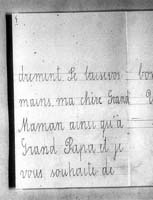 drement. Je baiserai
mains, ma chère Grand
Maman ainsi qu'à
Grand Papa et je
vous souhaite de